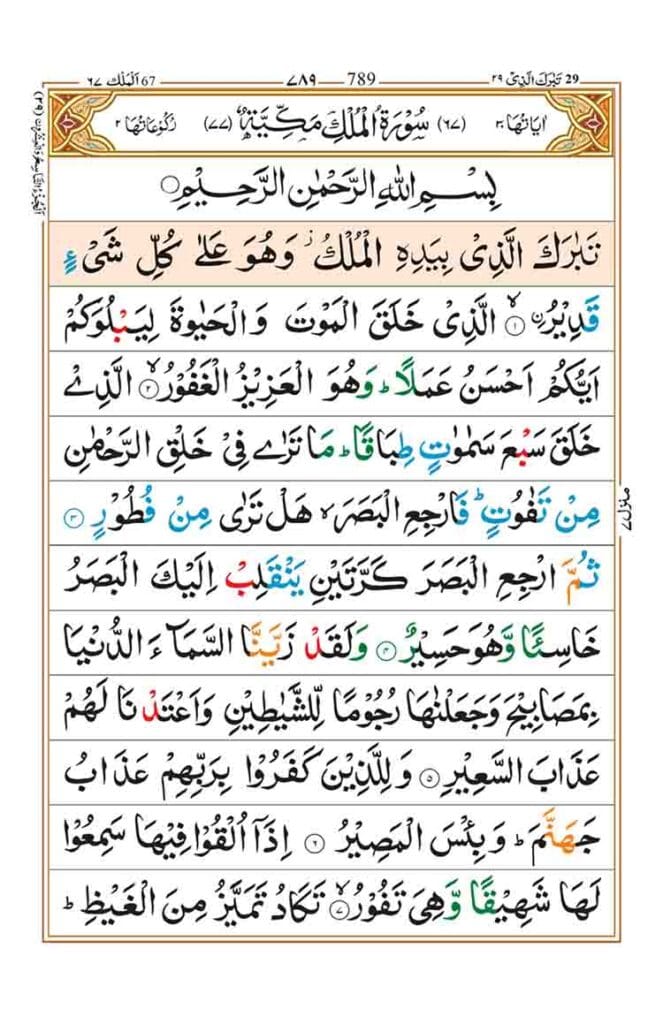 29 تَبٰرَكَ الَّذِىْ ٢٩    789 ٧٨٩    67 اَلْمُلْك ٦٧
اٰيَاتُهَا ٣٠ (٦٧) سُوْرَةُ الْمُلْكِ مَكِّيَّةٌ (٧٧) رُكُوْعَاتُهَا ٢
بِسْمِ اللّٰهِ الرَّحْمٰنِ الرَّحِيْمِ
تَبٰرَكَ الَّذِىْ بِيَدِهِ الْمُلْكُ ز وَهُوَ عَلٰى كُلِّ شَىْءٍ
قَدِيْرُ ۨ ۙ ١ الَّذِىْ خَلَقَ الْمَوْتَ وَالْحَيٰوةَ لِيَبْلُوَكُمْ
اَيُّكُمْ اَحْسَنُ عَمَلًا ط وَهُوَ الْعَزِيْزُ الْغَفُوْرُ ۙ ٢ الَّذِىْ
خَلَقَ سَبْعَ سَمٰوٰتٍ طِبَاقًا ط مَا تَرٰى فِىْ خَلْقِ الرَّحْمٰنِ
مِنْ تَفٰوُتٍ ط فَارْجِعِ الْبَصَرَ ۙ هَلْ تَرٰى مِنْ فُطُوْرٍ ٣
ثُمَّ ارْجِعِ الْبَصَرَ كَرَّتَيْنِ يَنْقَلِبْ اِلَيْكَ الْبَصَرُ
خَاسِئًا وَّهُوَ حَسِيْرٌ ٤ وَلَقَدْ زَيَّنَّا السَّمَآءَ الدُّنْيَا
بِمَصَابِيْحَ وَجَعَلْنٰهَا رُجُوْمًا لِّلشَّيٰطِيْنِ وَاَعْتَدْنَا لَهُمْ
عَذَابَ السَّعِيْرِ ٥ وَلِلَّذِيْنَ كَفَرُوْا بِرَبِّهِمْ عَذَابُ
جَهَنَّمَ ط وَبِئْسَ الْمَصِيْرُ ٦ اِذَآ اُلْقُوْا فِيْهَا سَمِعُوْا
لَهَا شَهِيْقًا وَّهِىَ تَفُوْرُ ۙ ٧ تَكَادُ تَمَيَّزُ مِنَ الْغَيْظِ ط
اَلْجُزْءُ التَّاسِعُ وَالْعِشْرُوْنَ (٢٩)
منزل ٧